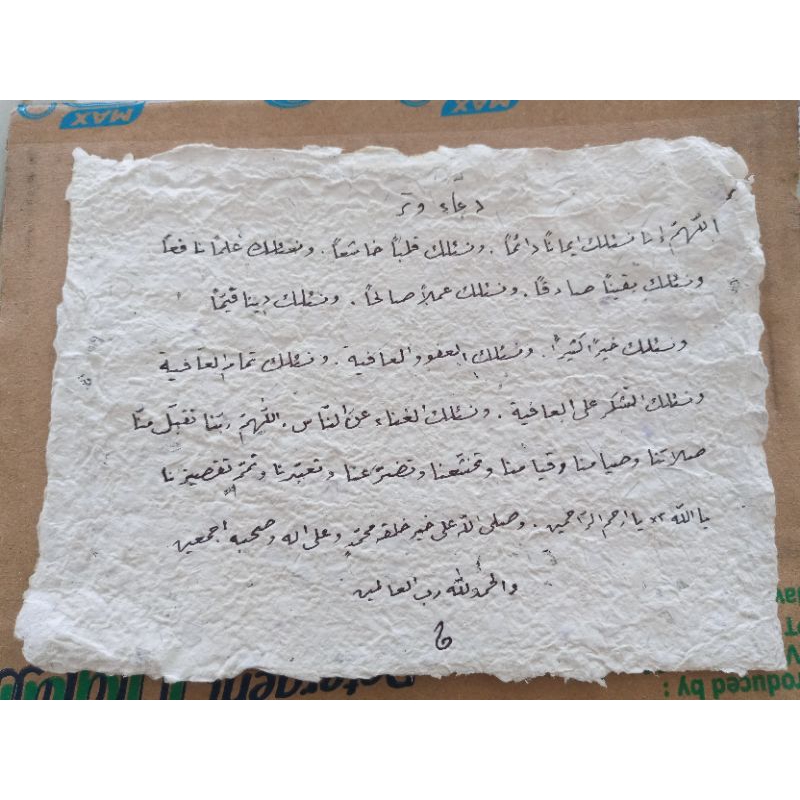 MAX
MAX
دعاء وتر
اللهمّ إنا نسئلك ايمانًا دائمًا . ونسئلك قلبًا خاشعًا . ونسئلك علمًا نافعًا
ونسئلك يقينًا صادقًا . ونسئلك عملاً صالحًا . ونسئلك دينا قيمًا
ونسئلك خيرًا كثيرًا . ونسئلك العفو والعافية . ونسئلك تمام العافية
ونسئلك الشكر على العافية . ونسئلك الغناء عن النّاس . اللهمّ ربّنا تقبّل منّا
صلاتنا وصيامنا وقيامنا وتخشّعنا وتضرّعنا وتعبّدنا وتمّم تقصيرنا
يا الله ٣× يا ارحم الرّاحمين . وصلى الله على خير خلقه محمّدٍ وعلى اله وصحبه اجمعين
والحمد لله رب العالمين
Detergent
roduced by :